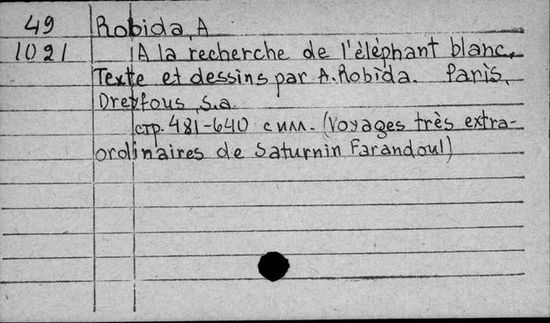 49 Robida, A
1021 A la recherche de l'éléphant blanc.
Texte et dessins par A. Robida. Paris,
Dreyfous, s.a.
стр. 481-640 с илл. (Voyages très extra-
ordinaires de Saturnin Farandoul)